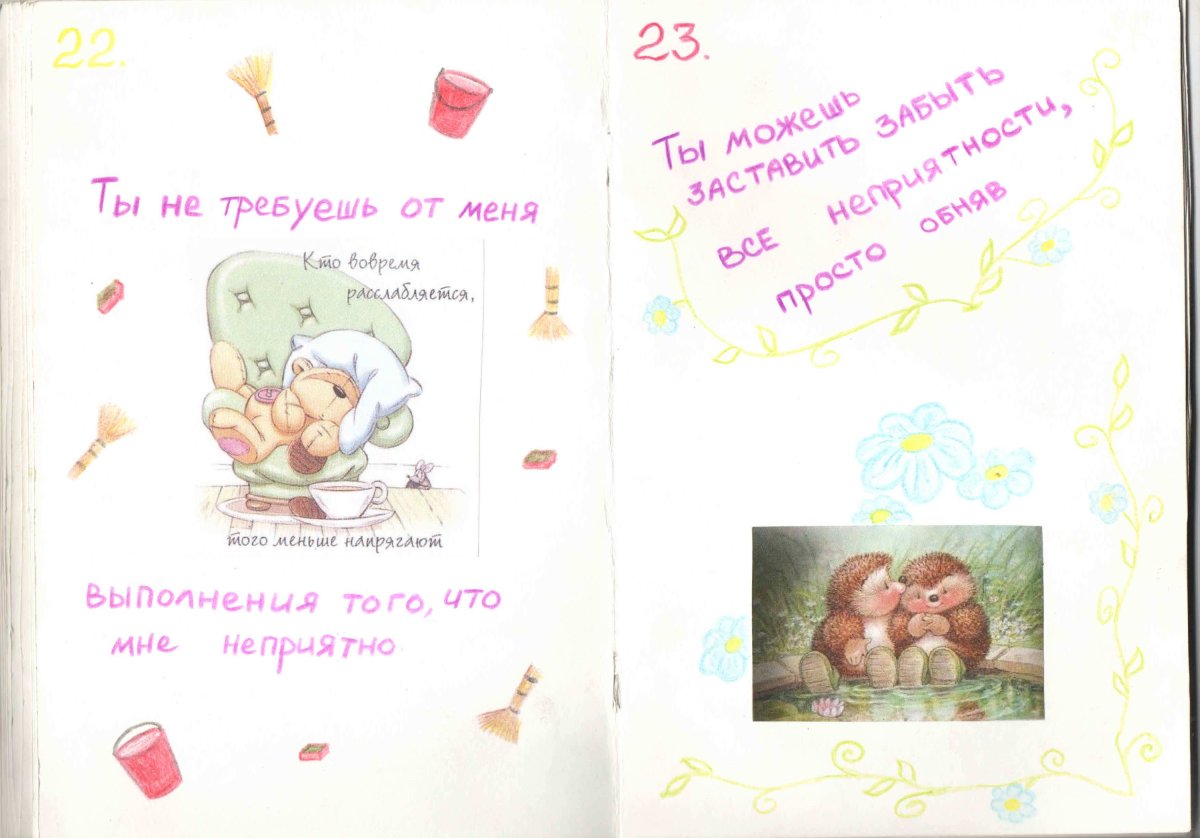 22.
Ты не требуешь от меня
Кто вовремя
расслабляется,
того меньше напрягают
выполнения того, что
мне неприятно
23.
Ты можешь
заставить забыть
все неприятности,
просто обняв